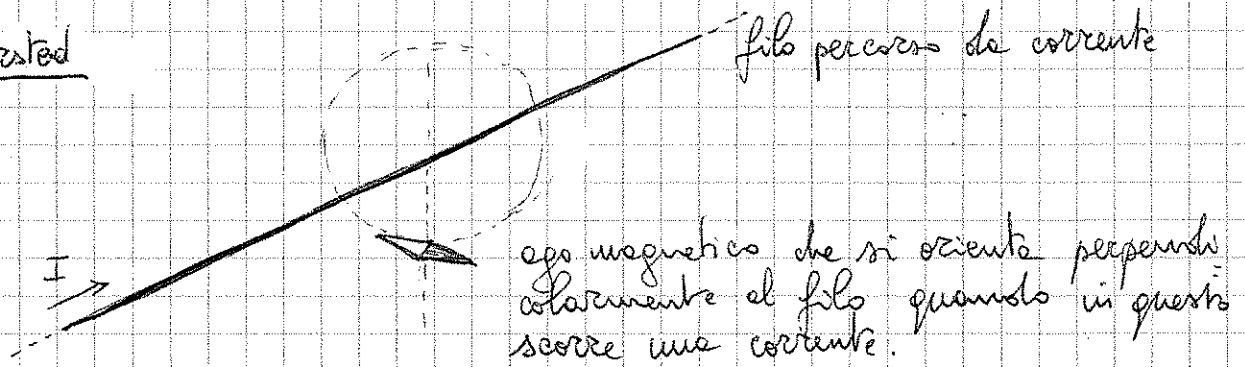 rsted
filo percorso da corrente
I
ago magnetico che si orienta perpendi
colarmente al filo quando in questo
scorre una corrente.